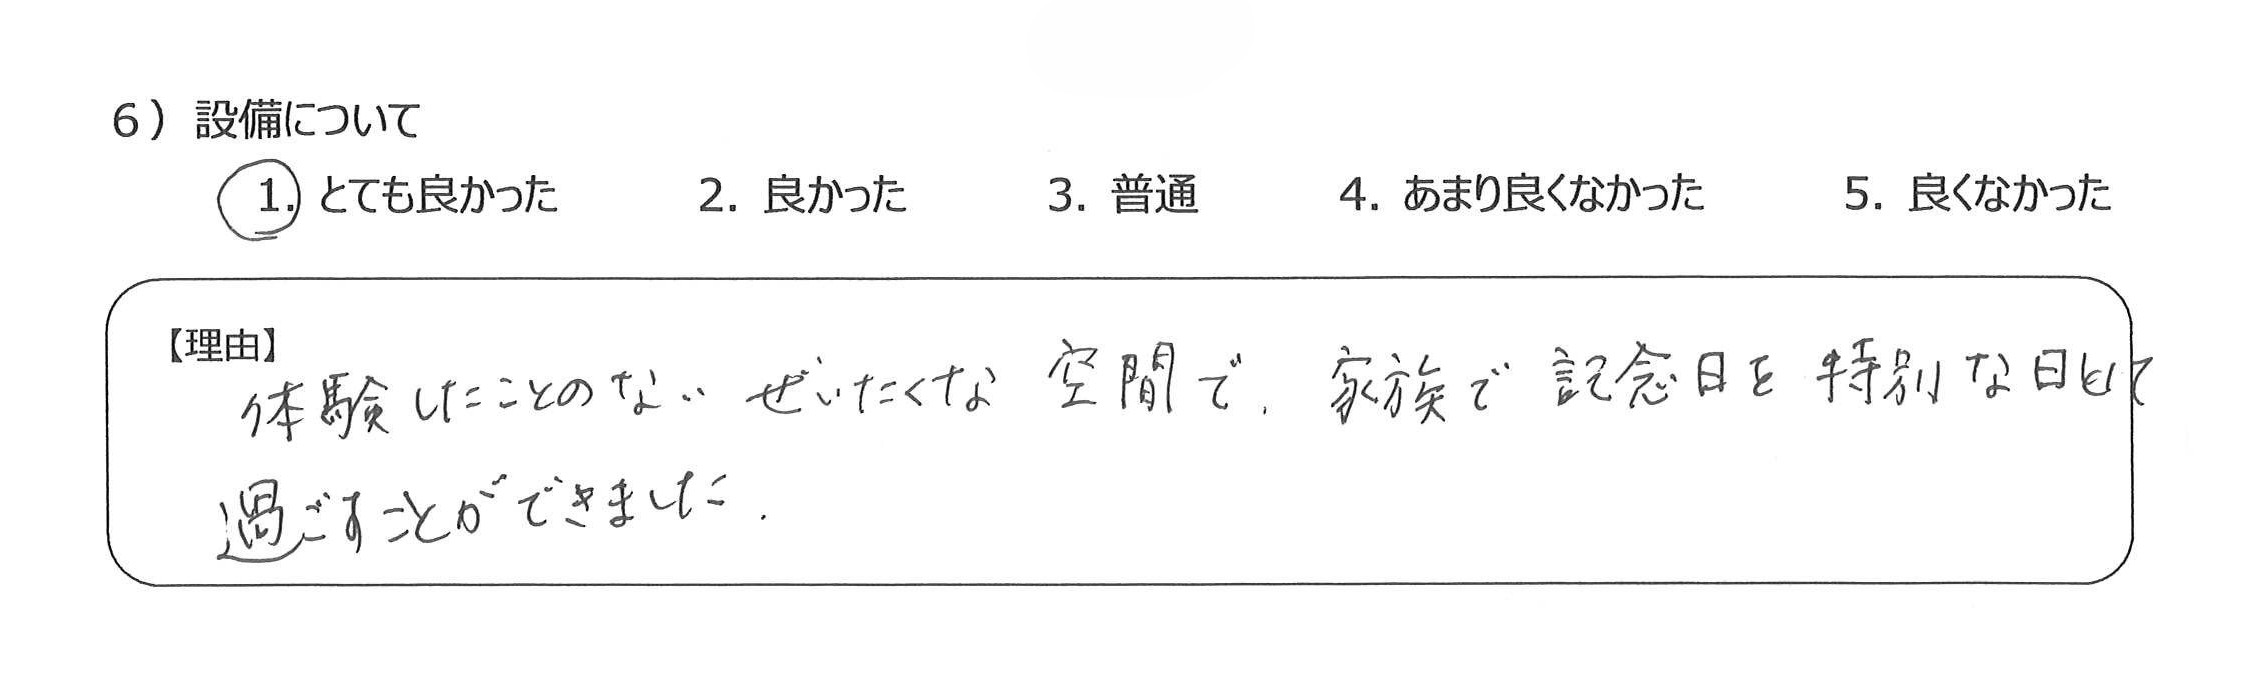 6）設備について
1. とても良かった 2. 良かった 3. 普通 4. あまり良くなかった 5. 良くなかった
【理由】
体験したことのないぜいたくな空間で、家族で記念日を特別な日として
過ごすことができました.